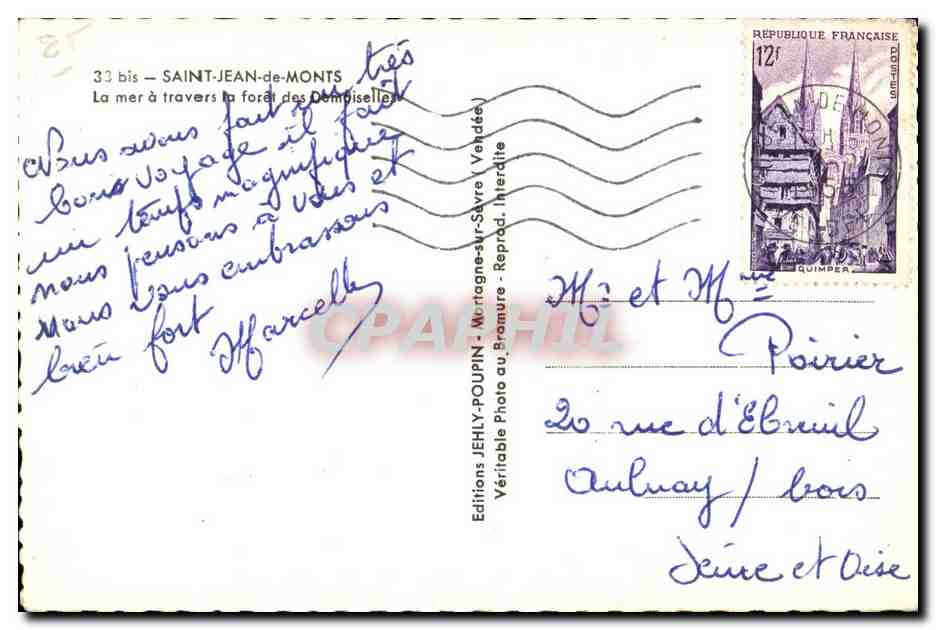 33 bis — SAINT-JEAN-de-MONTS
La mer à travers la forêt des Demoiselles
Nous avons fait un très
bons voyage il fait
un temps magnifique
nous pensons à vous et
Nous vous embrassons
bien fort
Marcelle
Editions JEHLY-POUPIN - Mortagne-sur-Sèvre (Vendée)
Véritable Photo au Bromure - Reprod. Interdite
RÉPUBLIQUE FRANÇAISE
12F
POSTES
QUIMPER
DE MON
CPAPHIL
Mr et Mme
Poirier
20 rue d'Ebreuil
Aulnay / bois
Seine et Oise